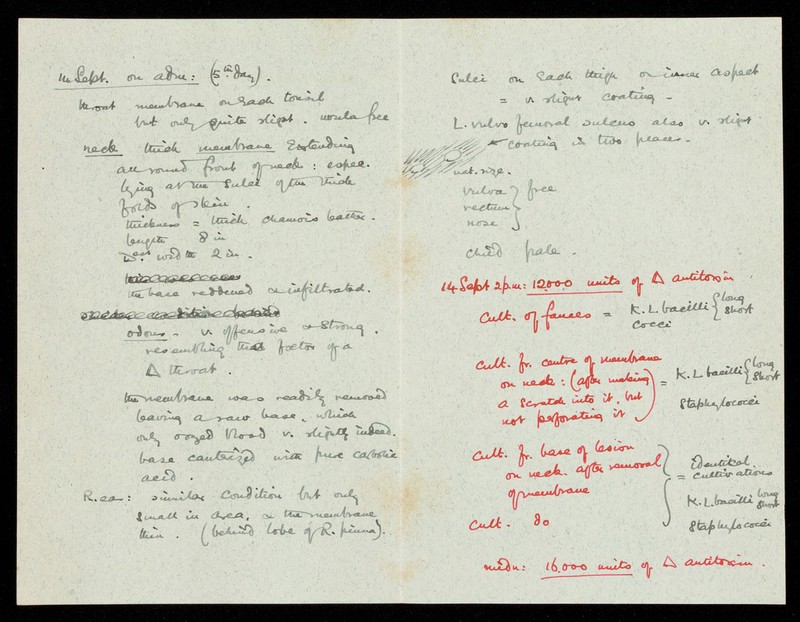 14 Sept. on adm: (5th day).
throat membrane on each tonsil
but only quite slight. uvula free
neck thick membrane extending
all round front of neck: espec.
lying at the sulci of the thick
folds of skin.
thickness = thick chamois leather.
length 8 in
width 2 in.
the base reddened & infiltrated.
odour - v. offensive & strong.
resembling the foetor of a
Δ throat.
the membrane was readily removed
leaving a raw base, which
only oozed blood v. slightly indeed.
base cauterized with pure carbolic
acid.
R. ear: similar condition but only
small in area, & the membrane
thin. (behind lobe of R. pinna).
Sulci on each thigh on inner aspect
= v slight coating -
L. vulvo femoral sulcus also v. slight
coating in two places.
nat. size.
vulva } free
rectum
nose
child pale.
14 Sept 2 p.m: 12000 units of Δ antitoxin
Cult. of fauces = K.L. bacilli { long
short
cocci
Cult. fr. centre of membrane
on neck: (after making
a scratch into it, but
not perforating it) = K.L bacilli { long
short
Staphylococci
Cult. fr. base of lesion
on neck. after removal
of membrane
Cult. do
= identical
cultivations
K.L. bacilli long
short
Staphylococci
medn: 16,000 units of Δ antitoxin.